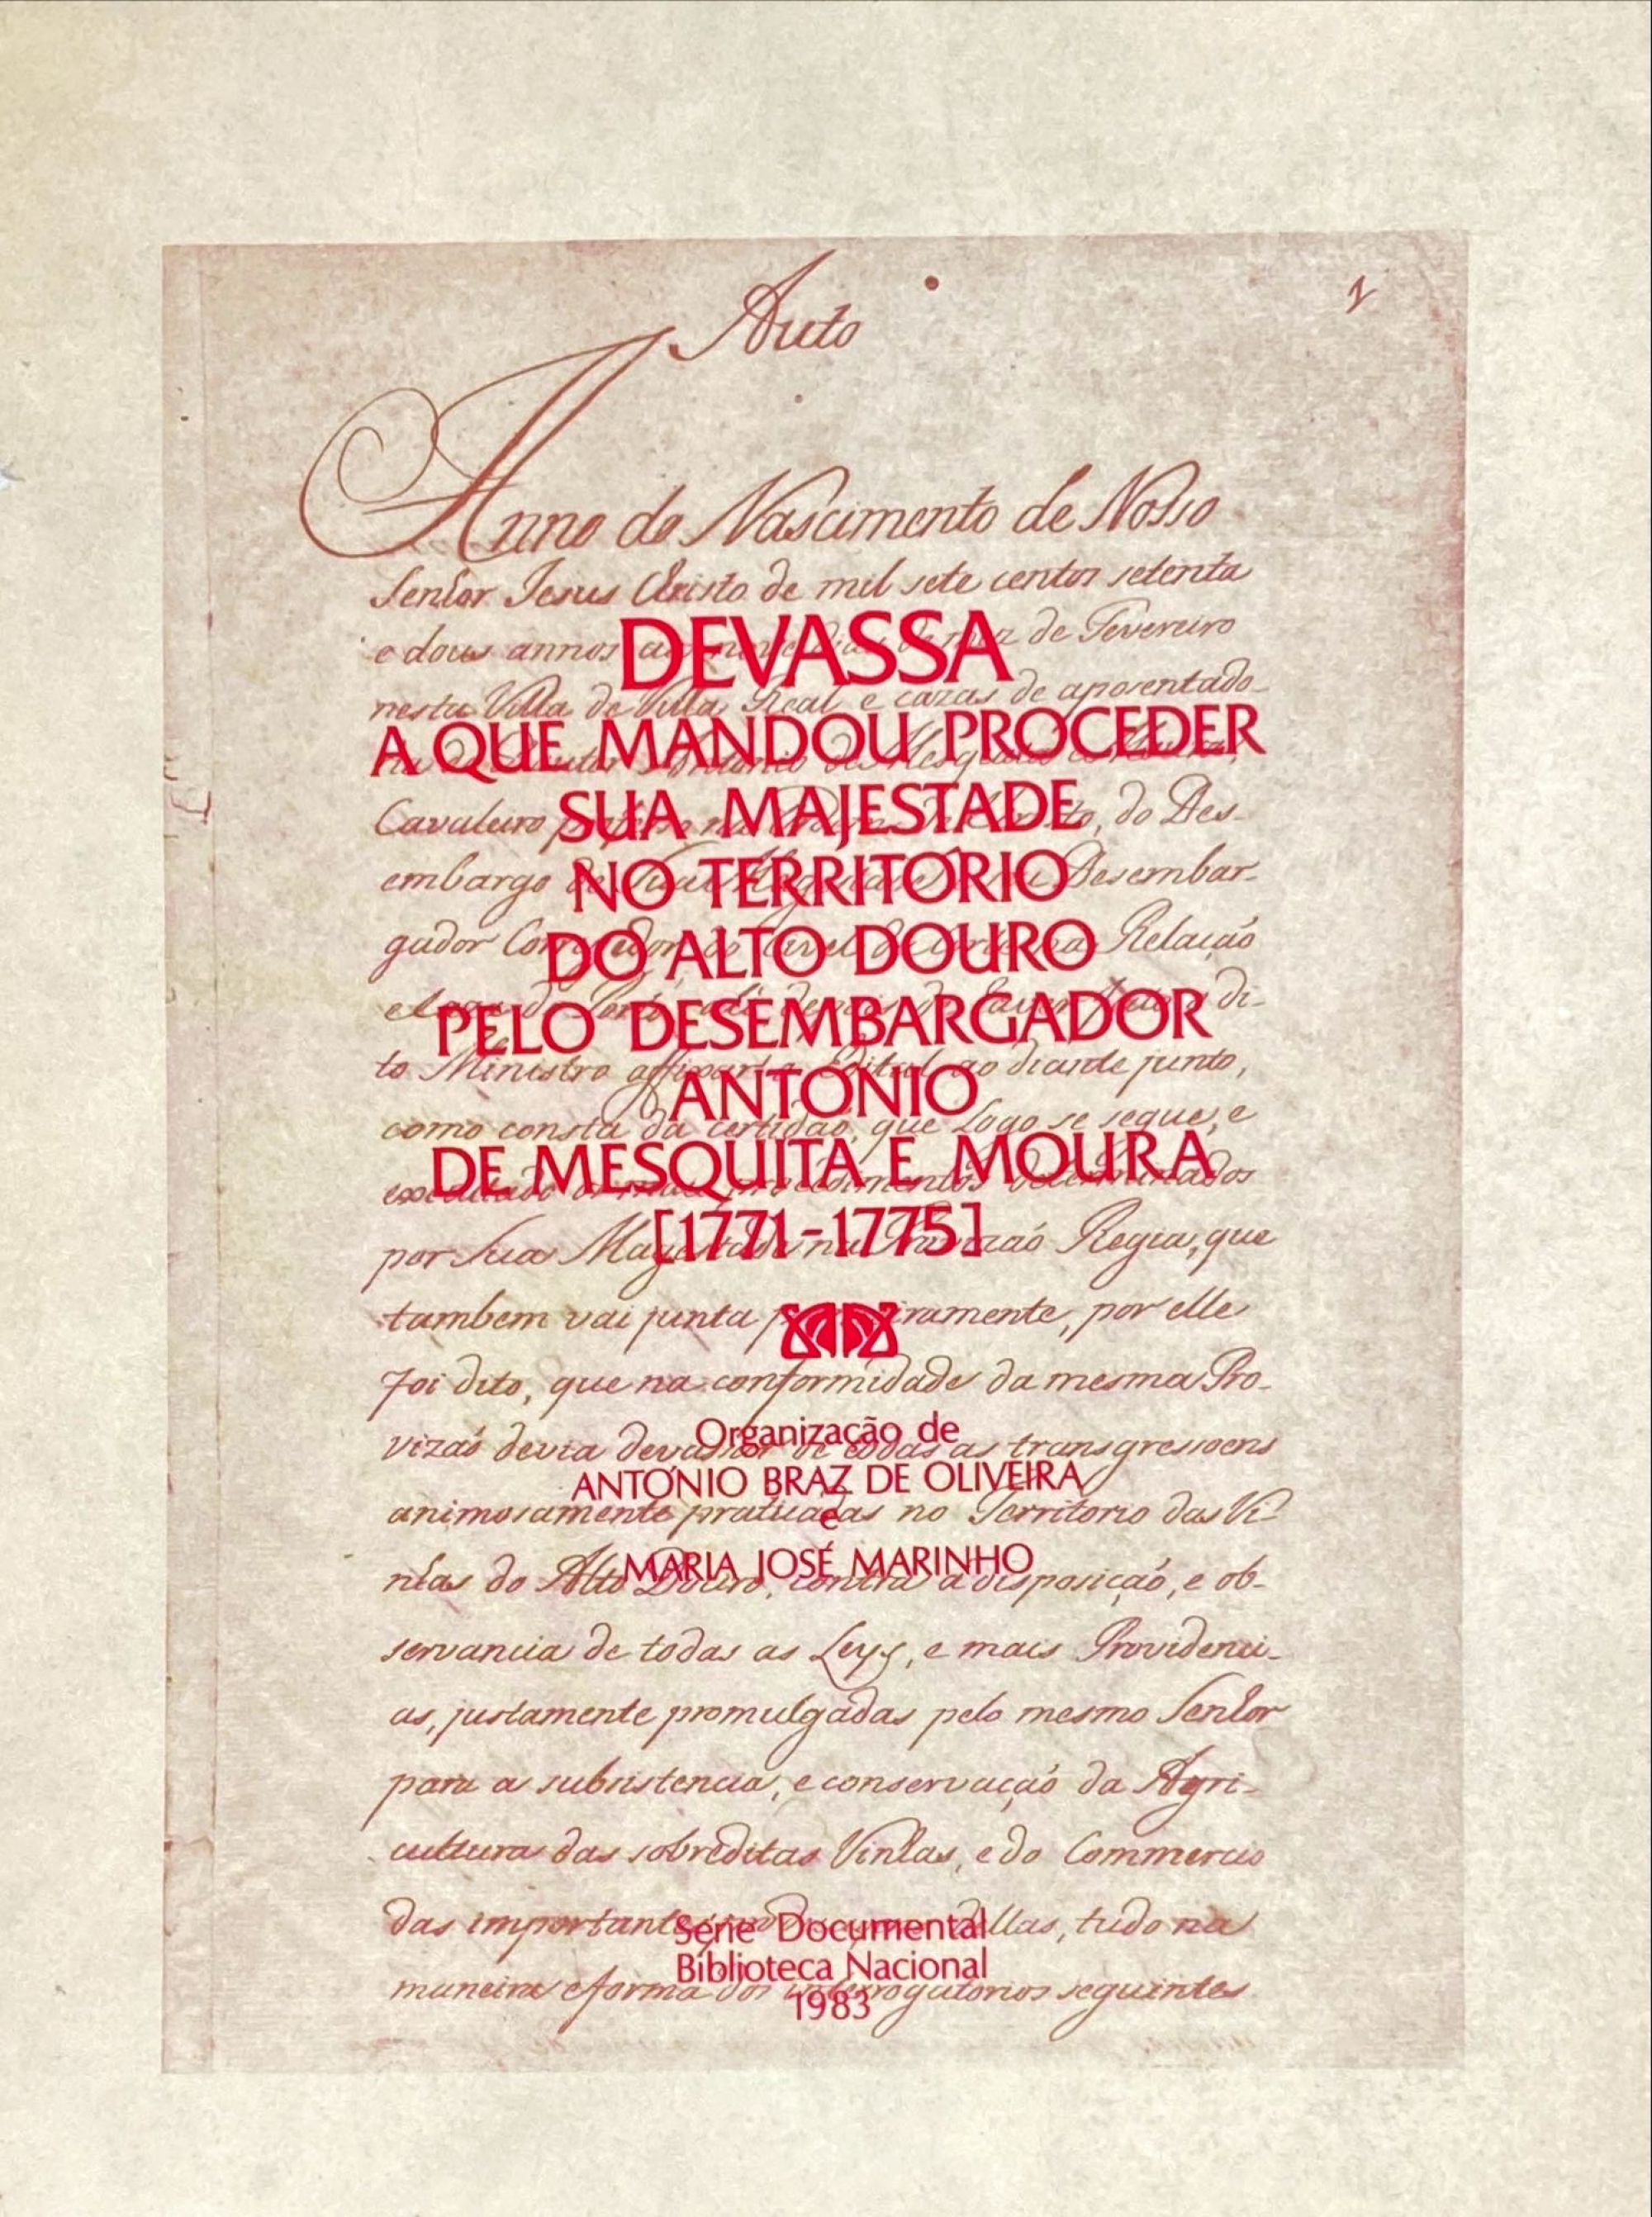 Auto
1
Anno do Nascimento de Nosso
Senhor Jesus Christo de mil sete centos setenta
e dous annos de Fevereiro
DEVASSA
nesta Villa de Villa Real e cazas de aposentado-
A QUE MANDOU PROCEDER
SUA MAJESTADE
Cavaleiro do Des-
NO TERRITÓRIO
embargo Desembar-
DO ALTO DOURO
gador Relação
PELO DESEMBARGADOR
di-
to Ministro Edital ao diante junto,
ANTÓNIO
como consta da certidaõ, que logo se segue, e
DE MESQUITA E MOURA
[1771-1775]
por Sua Regia, que
tambem vai junta por elle
foi dito, que na conformidade da mesma Pro-
Organização de
vizaõ devia de todas as transgressoens
ANTÓNIO BRAZ DE OLIVEIRA
e
animosamente praticadas no Territorio das Vi-
MARIA JOSÉ MARINHO
nhas do Alto Douro, contra a disposiçaõ, e ob-
servancia de todas as Leys, e mais Providenci-
as, justamente promulgadas pelo mesmo Senhor
para a subsistencia, e conservaçaõ da Agri-
cultura das sobreditas Vinhas, e do Commercio
das tudo na
Série Documental
Biblioteca Nacional
maneira e forma dos interrogatorios seguintes
1983